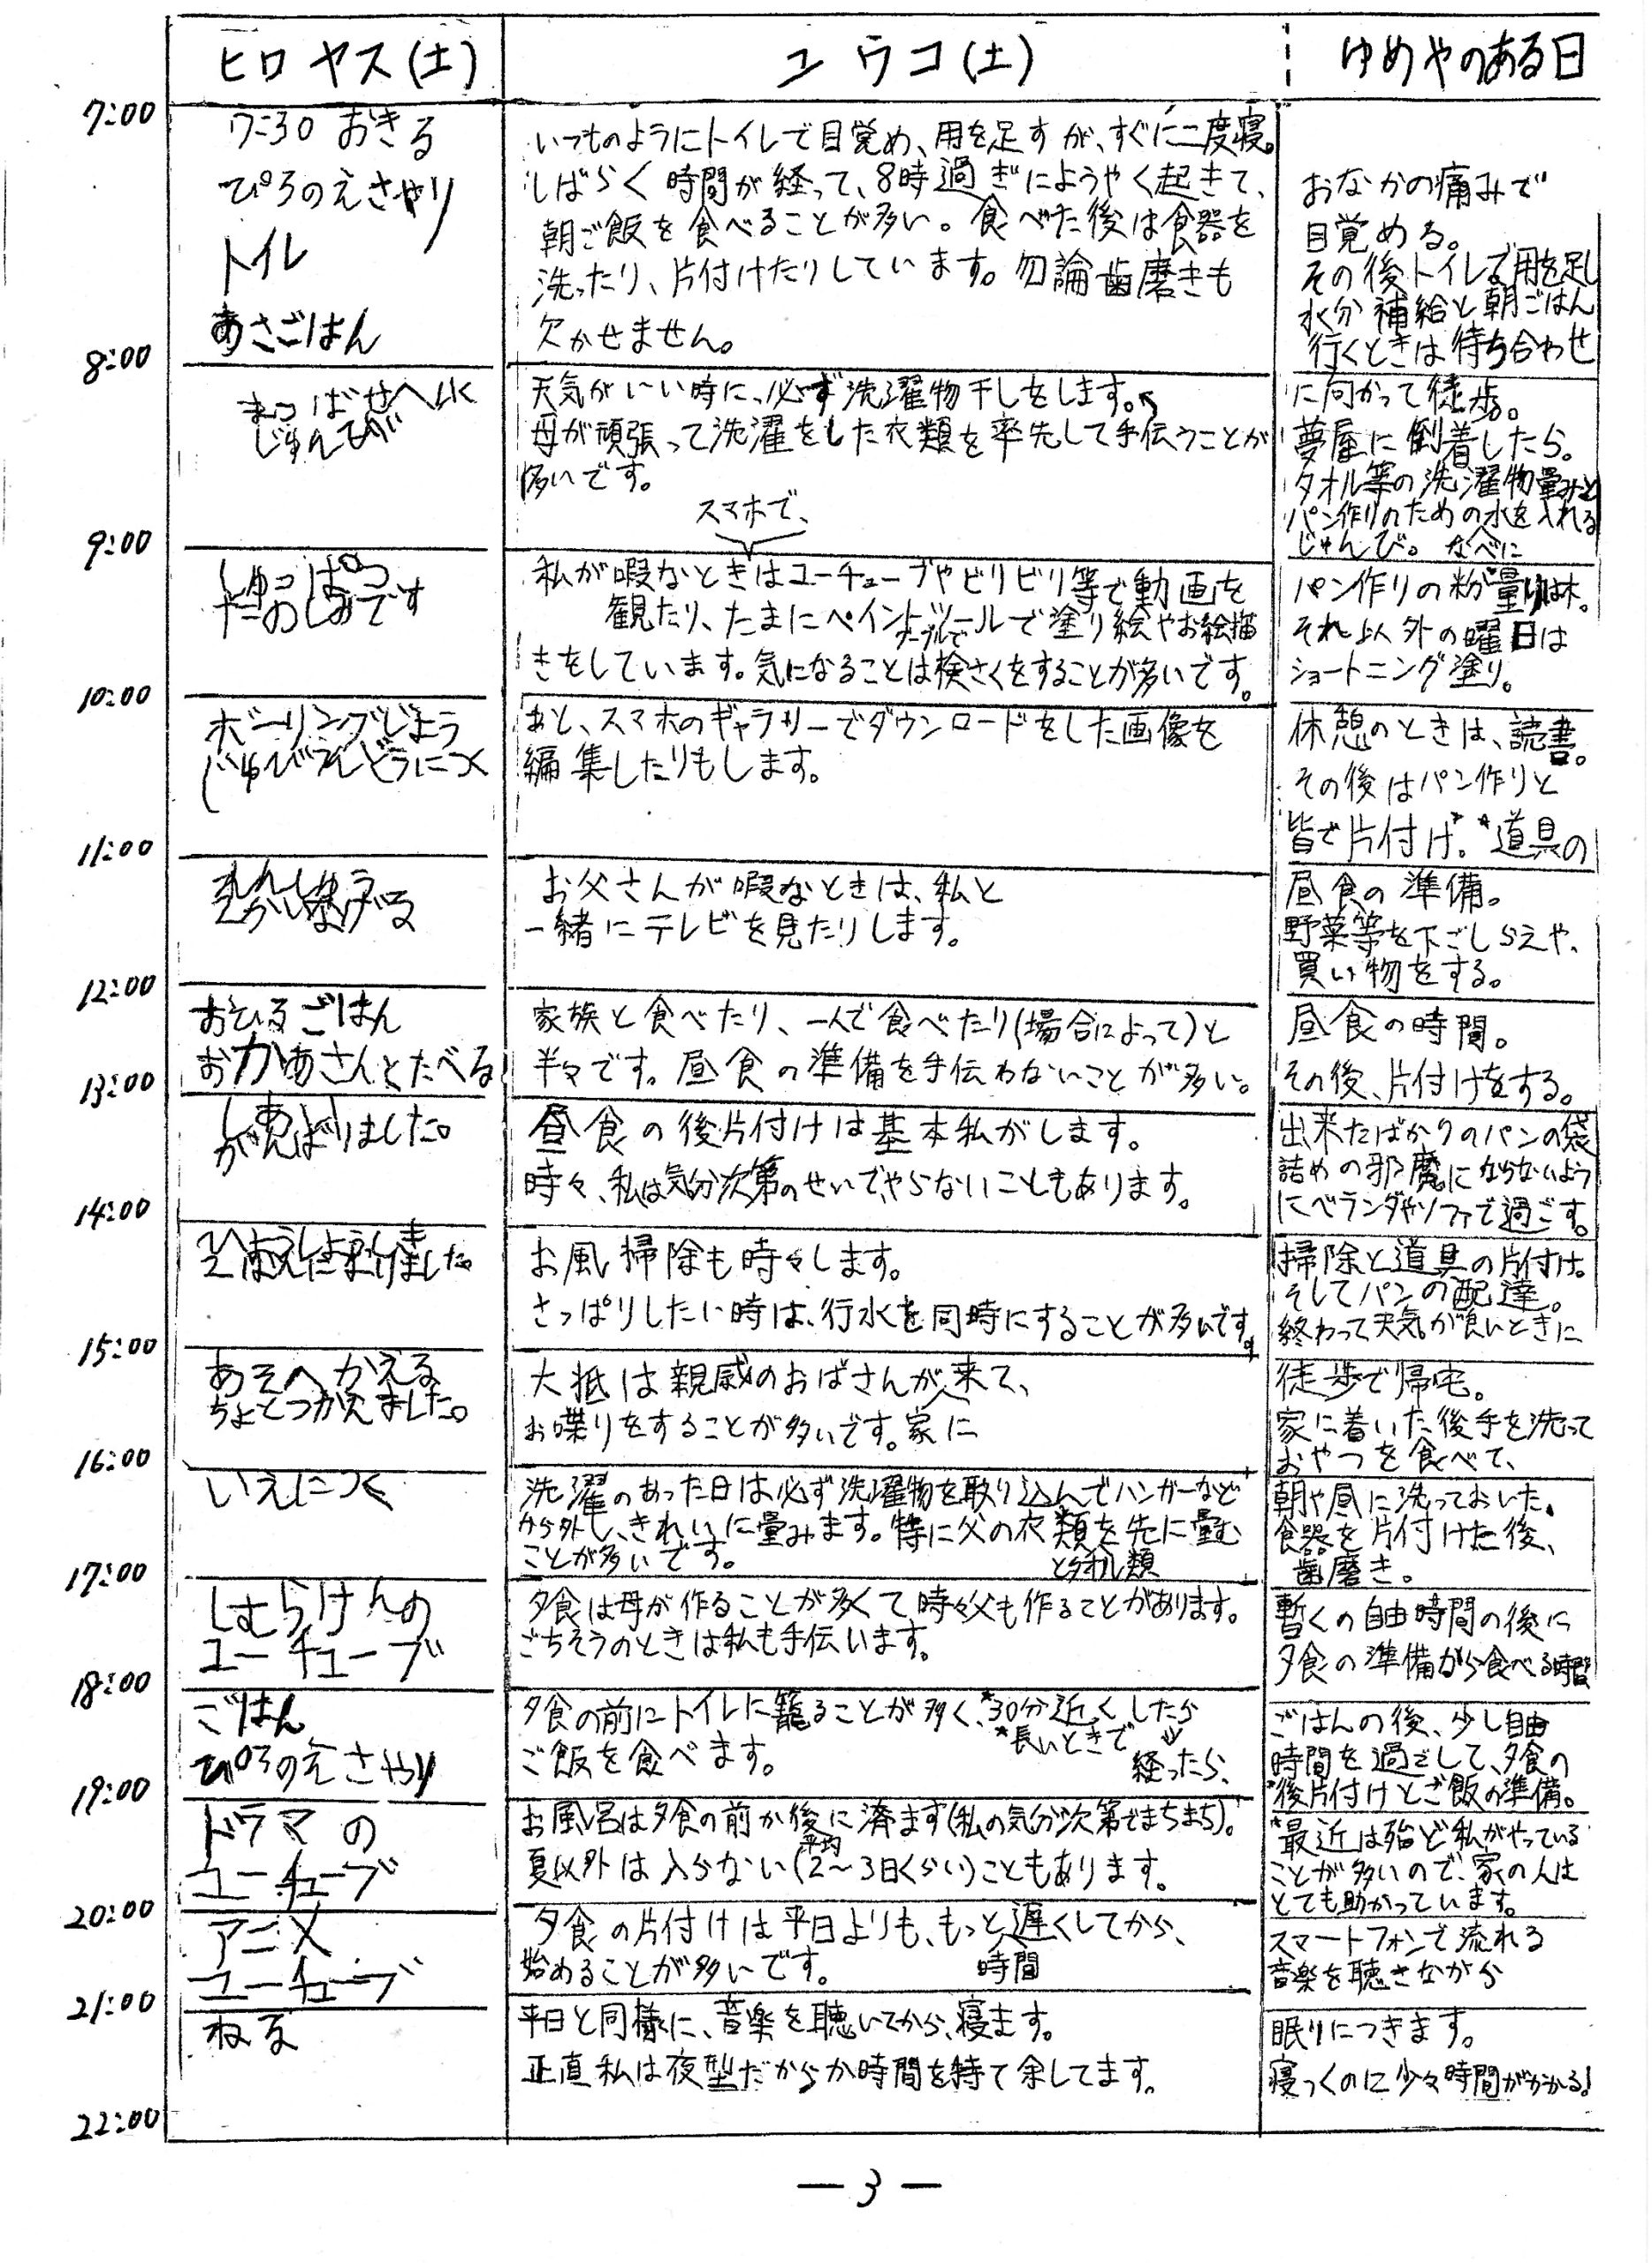 ヒロヤス(土)
ユウコ(土)
ゆめやのある日
7:00
7:30 おきる
ぴろのえさやり
トイレ
あさごはん
いつものようにトイレで目覚め、用を足すが、すぐに二度寝。
しばらく時間が経って、8時過ぎにようやく起きて、
朝ご飯を食べることが多い。食べた後は食器を
洗ったり、片付けたりしています。勿論歯磨きも
欠かせません。
おなかの痛みで
目覚める。
その後トイレで用を足し
水分補給と朝ごはん
行くときは待ち合わせ
8:00
まつばせへいく
じゅんび
天気がいい時に、必ず洗濯物干しをします。
母が頑張って洗濯をした衣類を率先して手伝うことが
多いです。
に向かって徒歩。
夢屋に到着したら。
タオル等の洗濯物畳みと
パン作りのための水を入れる
じゅんび。なべに
9:00
しゅっぱつ
たのしみです
スマホで、
私が暇なときはユーチューブやビリビリ等で動画を
観たり、たまにペイントツールで塗り絵やお絵描
きをしています。気になることは検さくをすることが多いです。
パン作りの粉量りは木。
それ以外の曜日は
ショートニング塗り。
10:00
ボーリングじょう
じゅんびうんどうにつく
あと、スマホのギャラリーでダウンロードをした画像を
編集したりもします。
休憩のときは、読書。
その後はパン作りと
皆で片付け。* *道具の
11:00
れんしゅう
お父さんが暇なときは、私と
一緒にテレビを見たりします。
昼食の準備。
野菜等を下ごしらえや、
買い物をする。
12:00
おひるごはん
おかあさんとたべる
家族と食べたり、一人で食べたり(場合によって)と
半々です。昼食の準備を手伝わないことが多い。
昼食の時間。
その後、片付けをする。
13:00
しあい
がんばりました。
昼食の後片付けは基本私がします。
時々、私は気分次第のせいでやらないこともあります。
出来たばかりのパンの袋
詰めの邪魔にならないよう
にベランダやソファで過ごす。
14:00
ひょうしょうしき
お風掃除も時々します。
さっぱりしたい時は、行水を同時にすることが多いです。
掃除と道具の片付け。
そしてパンの配達。
終わって天気が良いときに
15:00
あそへかえる
ちょとつかえました。
大抵は親戚のおばさんが来て、
お喋りをすることが多いです。家に
徒歩で帰宅。
家に着いた後手を洗って
おやつを食べて、
16:00
いえにつく
洗濯のあった日は必ず洗濯物を取り込んでハンガーなど
から外し、きれいに畳みます。特に父の衣類を先に畳む
ことが多いです。
朝や昼に洗っておいた
食器を片付けた後、
歯磨き。
17:00
しむらけんの
ユーチューブ
夕食は母が作ることが多くて時々父も作ることがあります。
ごちそうのときは私も手伝います。
暫くの自由時間の後に
夕食の準備がら食べる時間
18:00
ごはん
ぴろのえさやり
夕食の前にトイレに籠ることが多く、*30分近くしたら
*長いときで
ご飯を食べます。
経ったら、
ごはんの後、少し自由
時間を過ごして、夕食の
*後片付けとご飯の準備。
19:00
ドラマの
ユーチューブ
お風呂は夕食の前か後に済ます(私の気分次第でまちまち)。
平均
夏以外は入らない(2〜3日くらい)こともあります。
*最近は殆ど私がやっている
ことが多いので、家の人は
とても助かっています。
20:00
アニメ
ユーチューブ
夕食の片付けは平日よりも、もっと遅くしてから、
始めることが多いです。
時間
スマートフォンで流れる
音楽を聴きながら
21:00
ねる
平日と同様に、音楽を聴いてから、寝ます。
正直私は夜型だからか時間を持て余してます。
眠りにつきます。
寝つくのに少々時間がかかる!
22:00
— 3 —